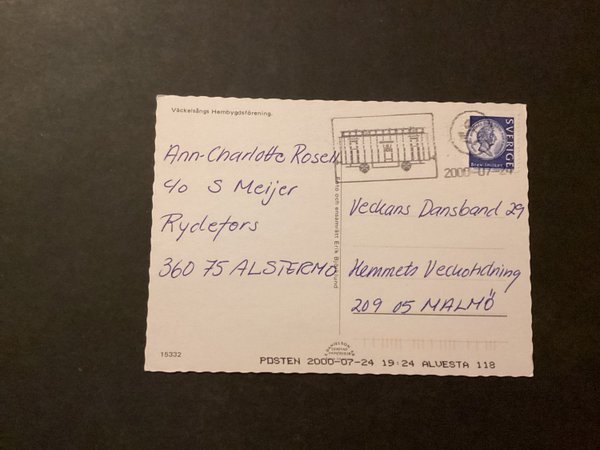 Väckelsångs Hembygdsförening.
Ann-Charlotte Rosell
c/o S Meijer
Rydefors
360 75 ALSTERMO
15332
Foto och ensamrätt Erik
SVERIGE
BREV INRIKES
2000-07-24
Veckans Dansband 29
Hemmets Veckotidning
209 05 MALMÖ
POSTEN 2000-07-24 19:24 ALVESTA 118